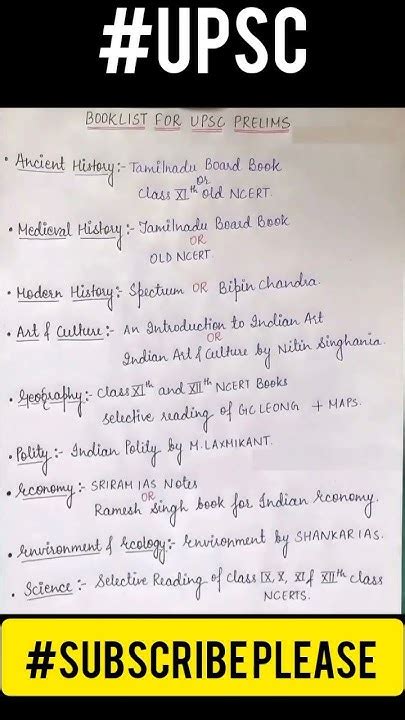 #UPSC
BOOKLIST FOR UPSC PRELIMS
• Ancient History:- Tamilnadu Board Book
or
Class XIth old NCERT.
• Medieval History:- Tamilnadu Board Book
OR
OLD NCERT.
• Modern History:- Spectrum OR Bipin Chandra.
• Art & Culture:- An Introduction to Indian Art
OR
Indian Art & Culture by Nitin Singhania.
• Geography:- Class XIth and XIIth NCERT Books
selective reading of GC LEONG + MAPS.
• Polity:- Indian Polity by M.LAXMIKANT.
• Economy:- SRIRAM IAS Notes
OR
Ramesh Singh book for Indian Economy.
• Environment & Ecology:- Environment by SHANKAR IAS.
• Science:- Selective Reading of Class IX, X, XI & XIIth class
NCERTS.
#SUBSCRIBE PLEASE